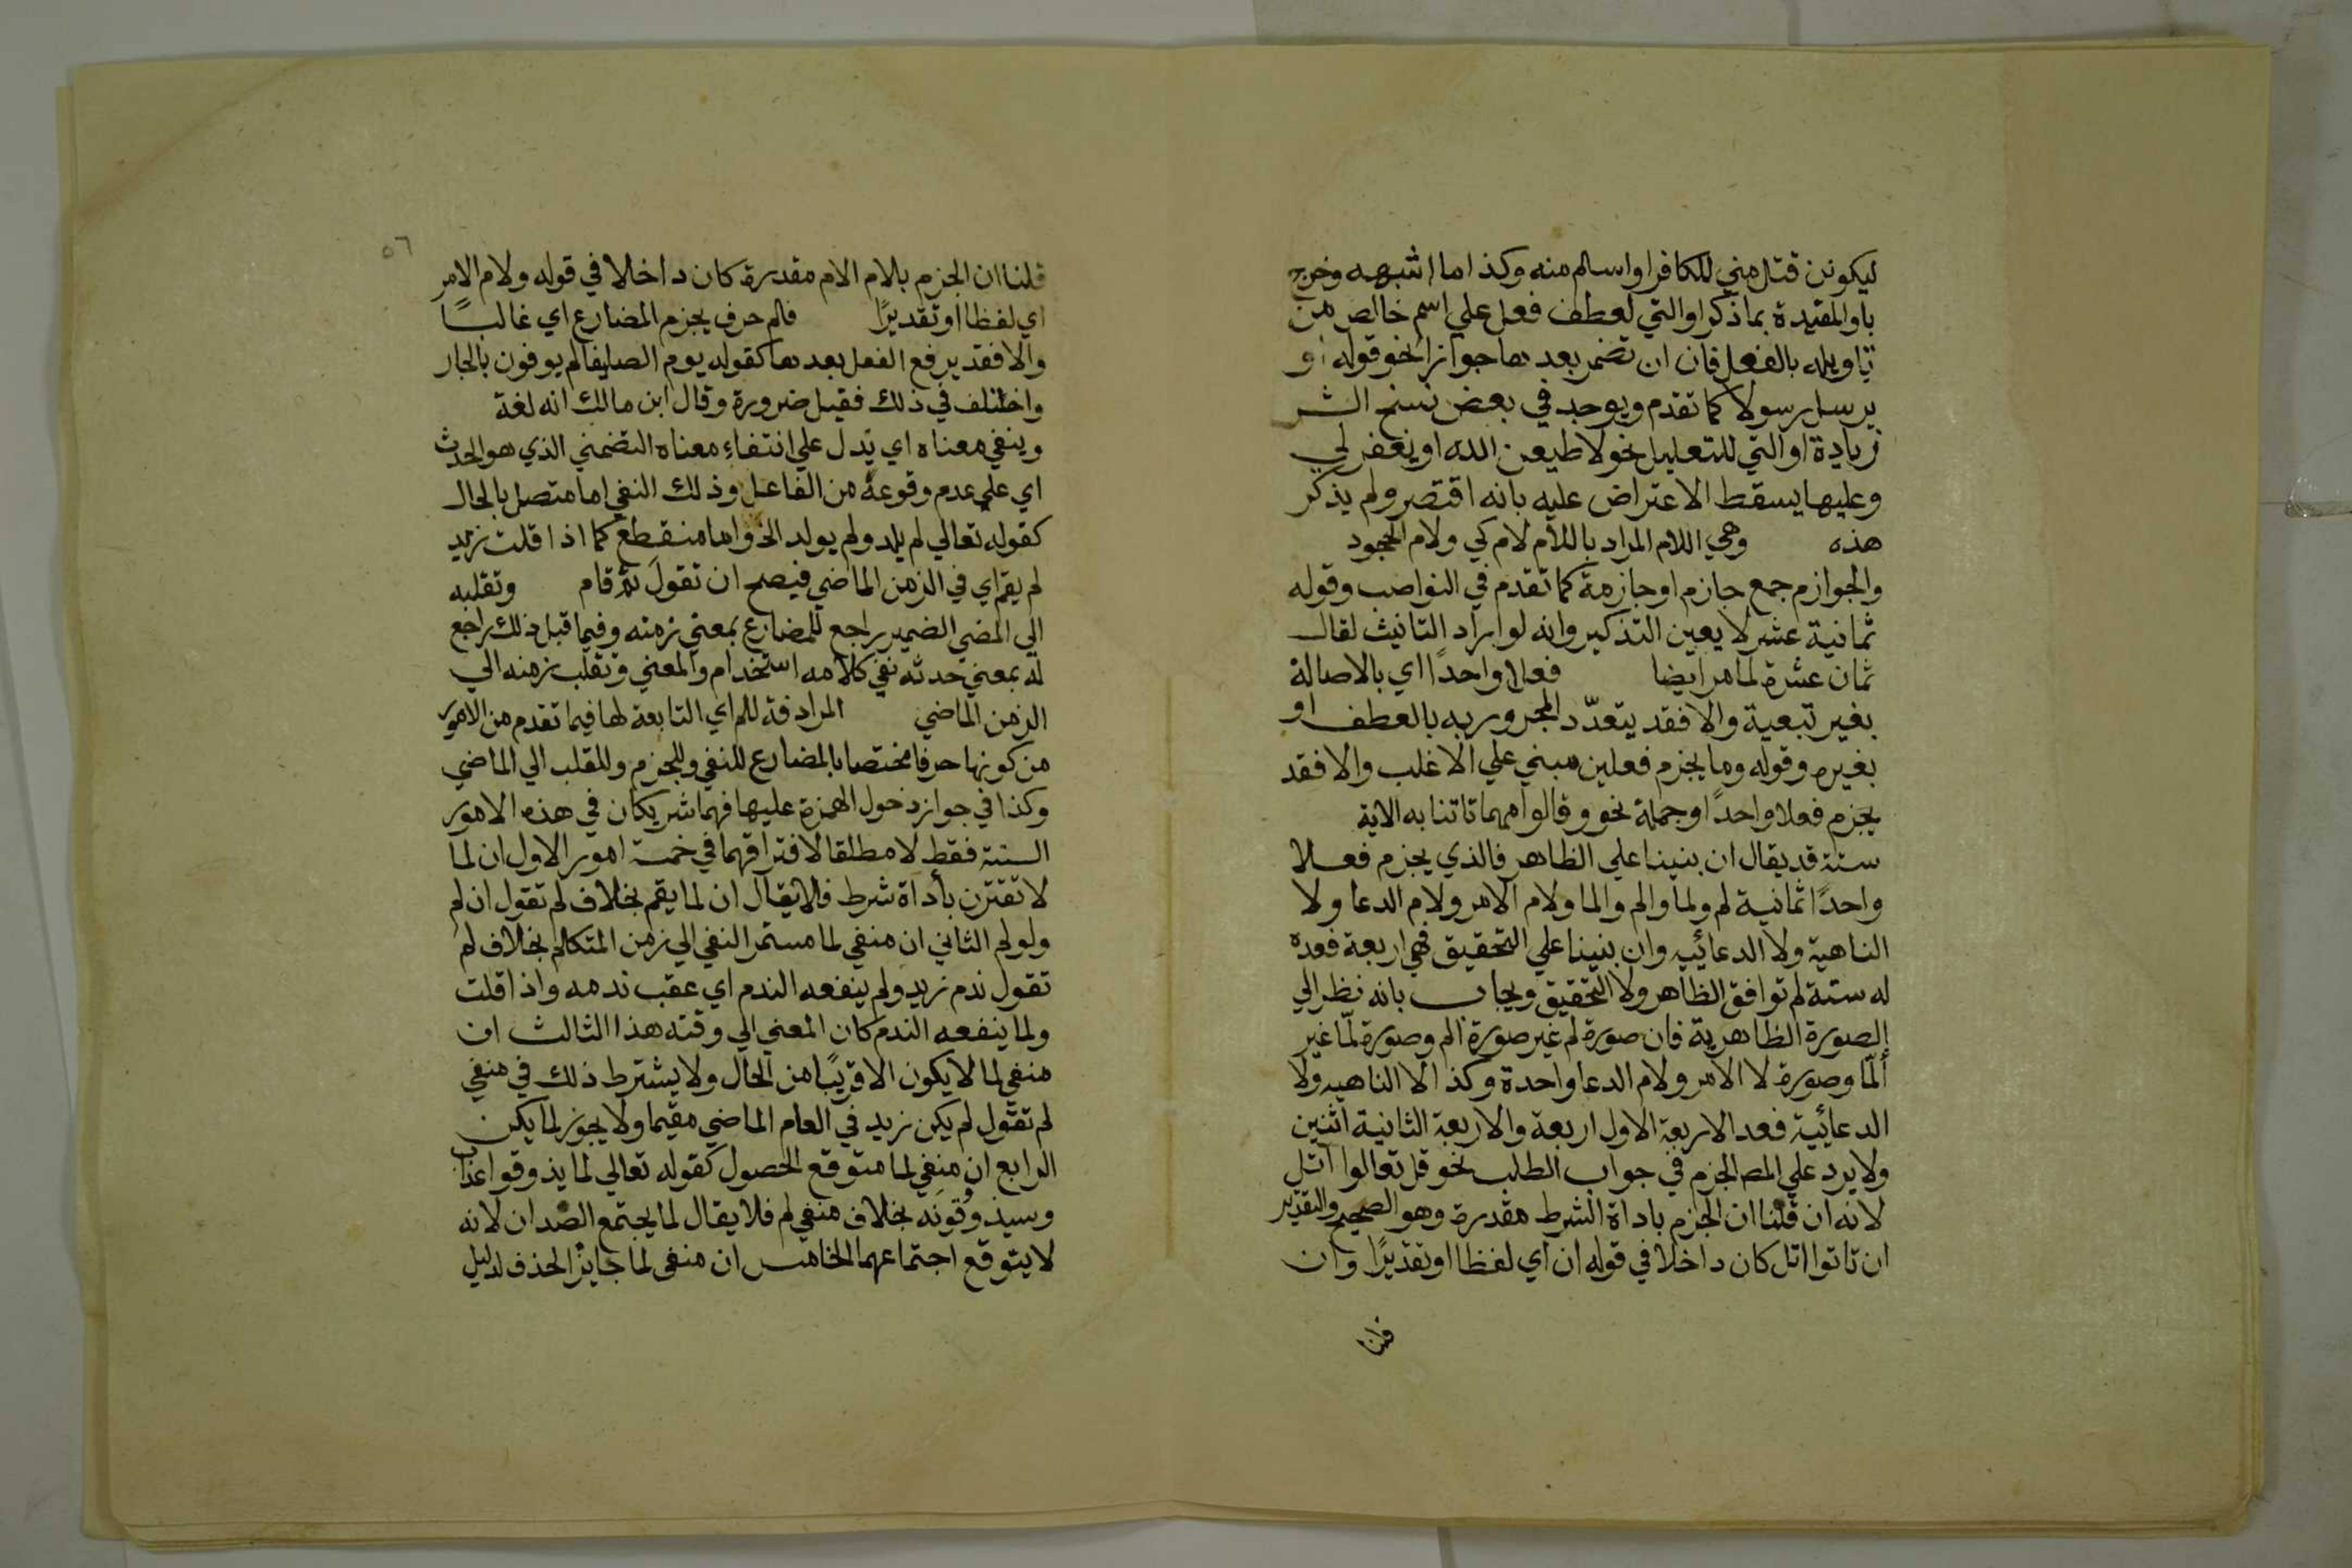 ليكونن قتل مني للكافر او اسلم منه وكذا ما اشبهه وخرج
باو المقيدة بما ذكر او التي لعطف فعل علي اسم خالص من
تاويله بالفعل فان ان تضمر بعدها جوازا نحو قوله او
يرسل رسولا كما تقدم ويوجد في بعض نسخ الشر
زيادة او التي للتعليل نحو لاطيعن الله او يغفر لي
وعليها يسقط الاعتراض عليه بانه اقتصر ولم يذكر
هذه وهي اللام المراد باللام لام كي ولام الجحود
والجوازم جمع جازم او جازمة كما تقدم في النواصب وقوله
ثمانية عشر لا يعين التذكير وانه لو اراد التانيث لقال
ثمان عشرة لما مر ايضا فعلا واحدًا اي بالاصالة
بغير تبعية والا فقد يتعدّد المجرور به بالعطف او
بغيره وقوله وما يجزم فعلين مبني علي الاغلب والا فقد
يجزم فعلا واحدًا وجملة نحو وقالوا مهما تاتنا به الاية
ستة قد يقال ان بنينا علي الظاهر فالذي يجزم فعلا
واحدًا ثمانية لم ولما والم والما ولام الامر ولام الدعا ولا
الناهية ولا الدعائيه وان بنينا علي التحقيق فهي اربعة فعده
له ستة لم توافق الظاهر ولا التحقيق ويجاب بانه نظر الي
الصورة الظاهرية فان صورة لم غير صورة الم وصورة لمّا غير
ألمّا وصورة لا الامر ولام الدعا واحدة وكذا لا الناهيه ولا
الدعائية فعد الاربعة الاول اربعة والاربعة الثانية اثنين
ولا يرد علي المص الجزم في جواب الطلب نحو قل تعالوا اتل
لانه ان قلنا ان الجزم باداة الشرط مقدرة وهو الصحيح والتقدير
ان تاتوا اتل كان داخلا في قوله ان اي لفظا او تقديرًا وان
قلنا
٥٦
قلنا ان الجزم بلام الامر مقدرة كان داخلا في قوله ولام الامر
اي لفظا او تقديرًا فلم حرف يجزم المضارع اي غالبًا
والا فقد يرفع الفعل بعدها كقوله يوم الصليفا لم يوفون بالجار
واختلف في ذلك فقيل ضرورة وقال ابن مالك انه لغة
وينفي معناه اي يدل علي انتفاء معناه التضمني الذي هو الحدث
اي علي عدم وقوعه من الفاعل وذلك النفي اما متصل بالحال
كقوله تعالي لم يلد ولم يولد الخ واما منقطع كما اذا قلت زيد
لم يقم اي في الزمن الماضي فيصح ان تقول ثم قام وتقلبه
الي المضي الضمير راجع للمضارع بمعني زمنه وفيما قبل ذلك راجع
له بمعني حدثه ففي كلامه استخدام والمعني وتقلب زمنه الي
الزمن الماضي المرادفة للم اي التابعة لها فيما تقدم من الامور
من كونها حرفا مختصا بالمضارع للنفي وللجزم وللقلب الي الماضي
وكذا في جواز دخول الهمزة عليها فهما شريكان في هذه الامور
الستة فقط لا مطلقا لافتراقهما في خمسة امور الاول ان لما
لا تقترن بأداة شرط فلا يقال ان لما يقم بخلاف لم تقول ان لم
ولو لم الثاني ان منفي لما مستمر النفي الي زمن المتكلم بخلاف لم
تقول ندم زيد ولم ينفعه الندم اي عقب ندمه واذا قلت
ولما ينفعه الندم كان المعني الي وقته هذا الثالث ان
منفي لما لا يكون الا قريبًا من الحال ولا يشترط ذلك في منفي
لم تقول لم يكن زيد في العام الماضي مقيما ولا يجوز لما يكن
الرابع ان منفي لما متوقع الحصول كقوله تعالي لما يذوقوا عذاب
وسيذوقونه بخلاف منفي لم فلا يقال لما يجتمع الضدان لانه
لا يتوقع اجتماعهما الخامس ان منفي لما جايز الحذف لدليل